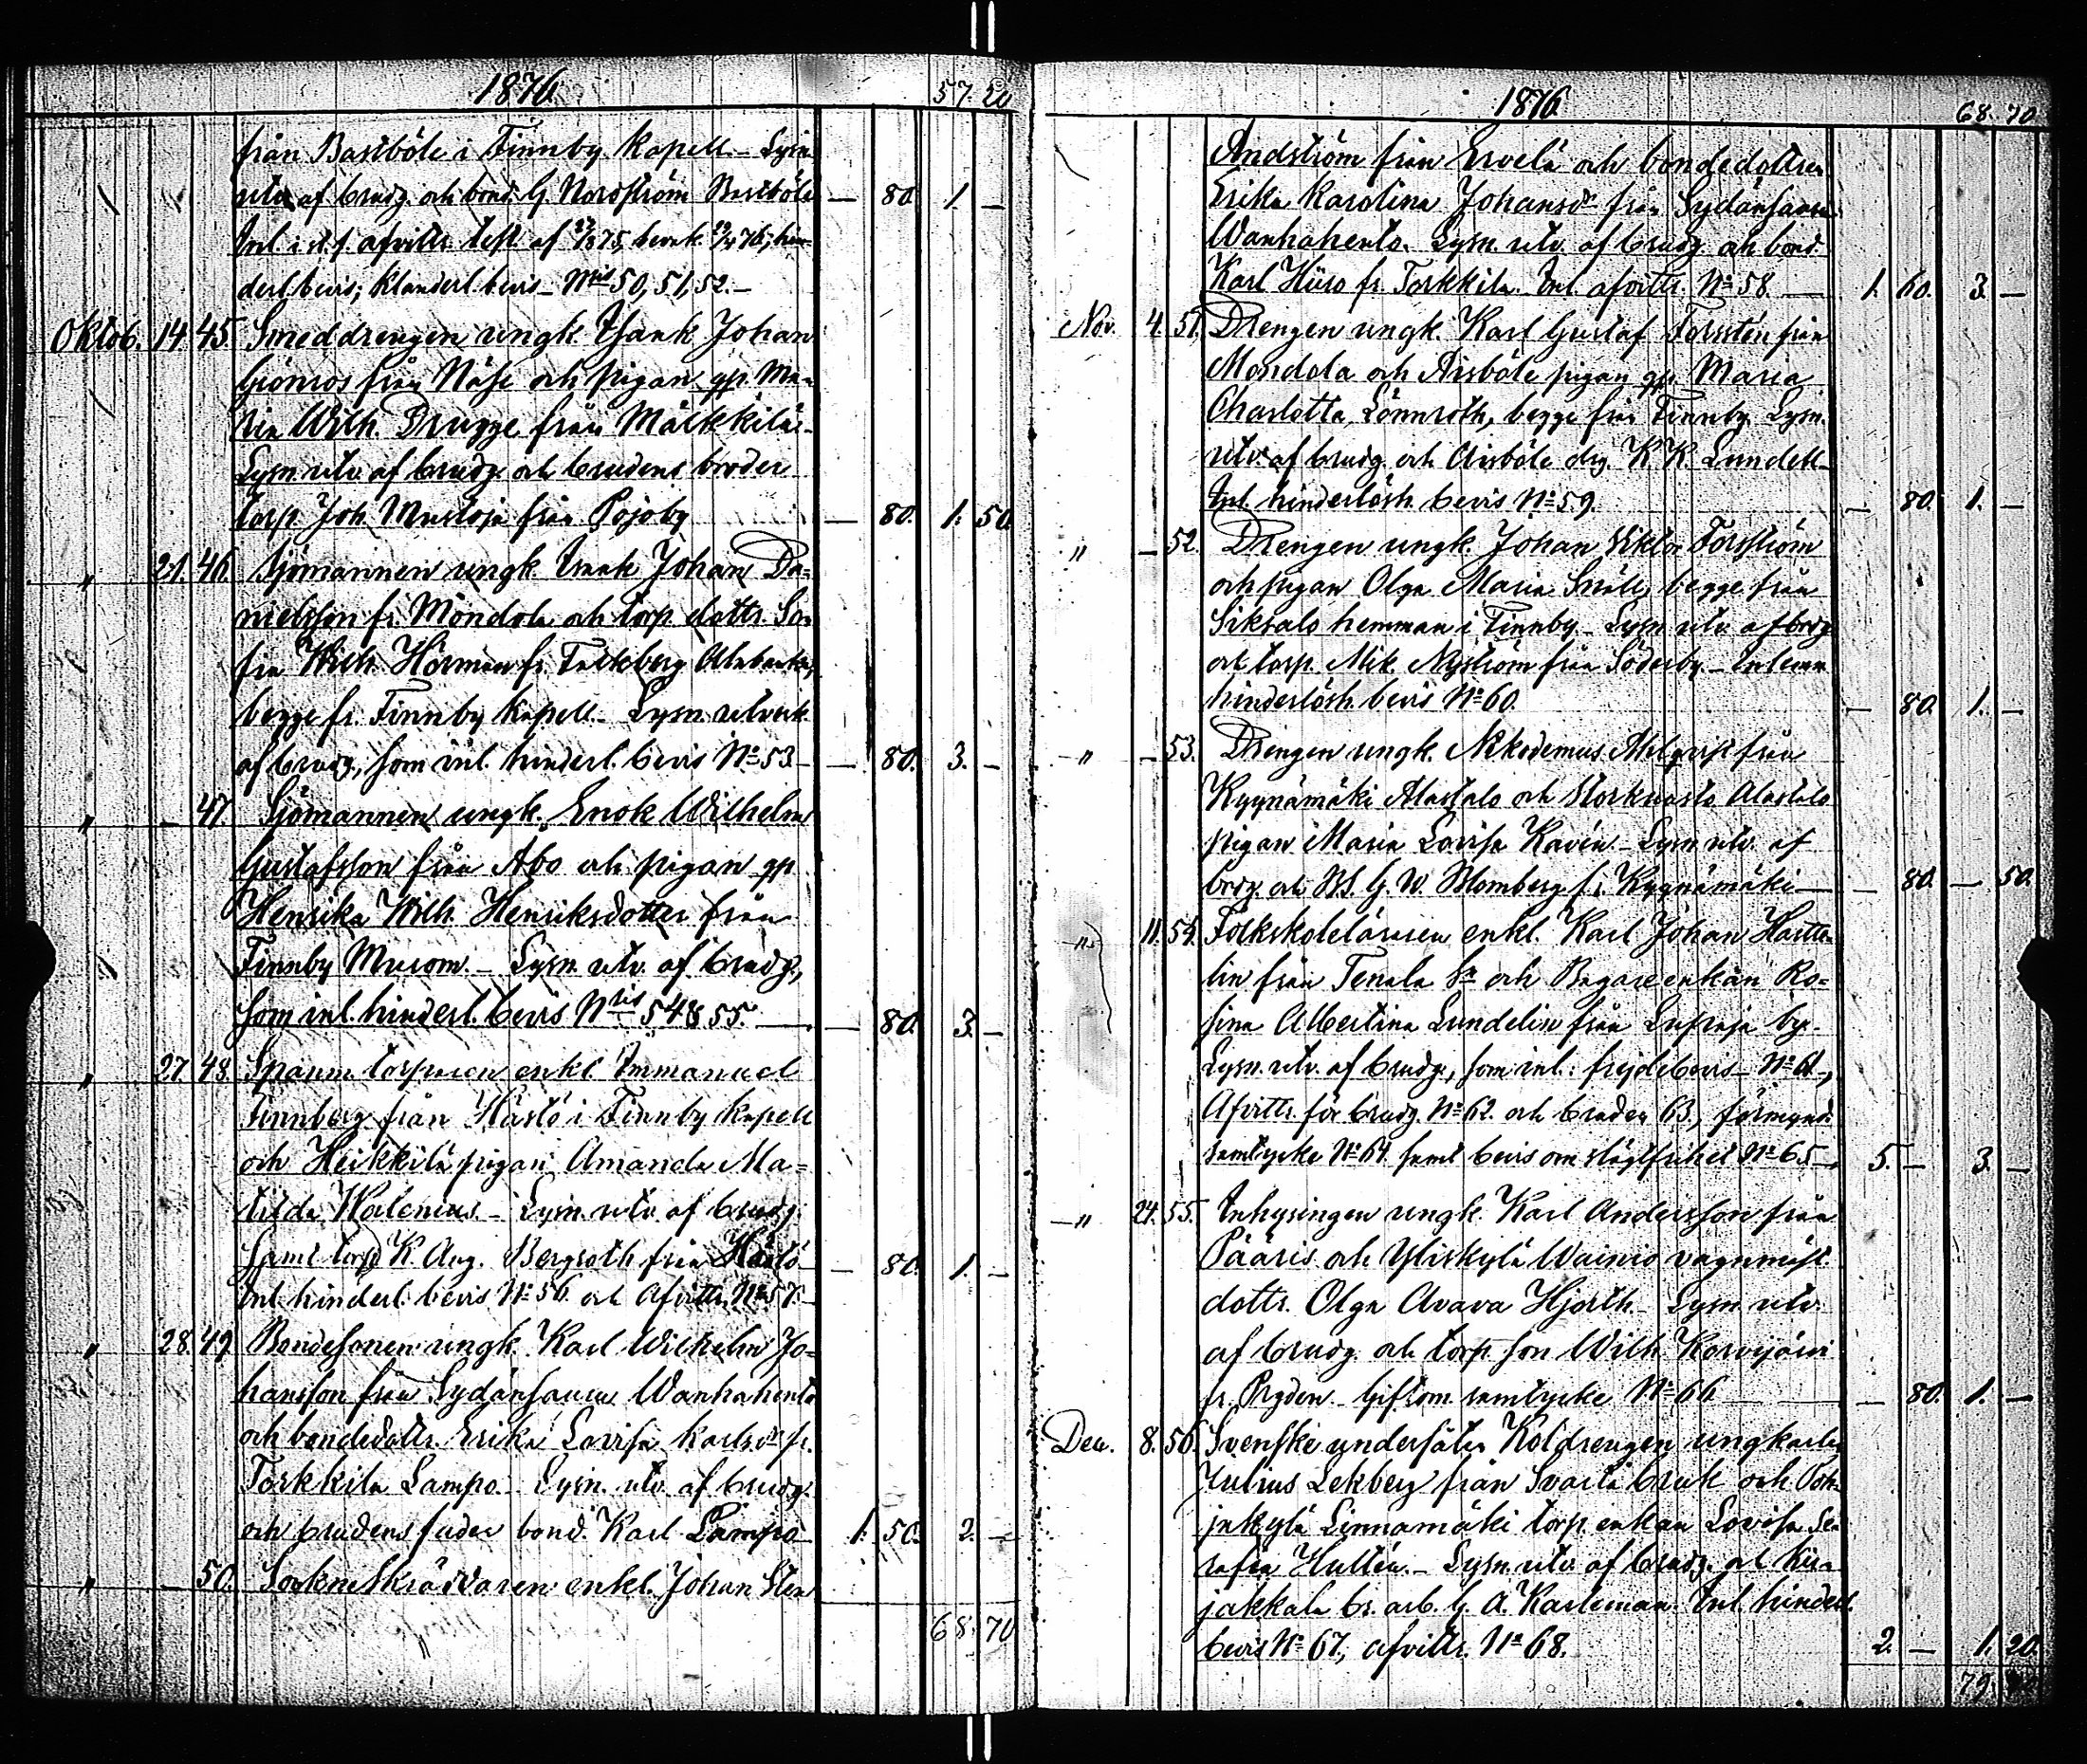 1876. 57. 20
från Bastböle i Finnby Kapell. - Lysn.
utv. af brudg. och bond. G. Nordström Bastböle — 80. 1. —
Inl. i st. f. afvittr. test. af 75, bevak. 76; hin-
derl. bevis; klanderl. bevis - N:ris 50, 51, 52. -
Oktob. 14. 45. Smeddrengen ungk. Isaak Johan
Grönroos från Näse och pigan gp. Ma-
ria Wilh. Drugge från Mälkkilä -
Lysn. utv. af brudg. och brudens broder
torp. Joh. Mustoja från Pojoby — 80. 1. 50.
" 21. 46. Sjömannen ungk. Isaak Johan Da-
nielsson fr. Mondola och torp. dottr. So-
fia Wilh. Herman fr.
begge fr. Finnby Kapell. - Lysn. utverk.
af brudg., som inl. hinderl. bevis N:o 53 - — 80. 3. —
" — 47. Sjömannen ungk. Enok Wilhelm
Gustafsson från Åbo och pigan gp.
Henrika Wilh. Henriksdotter från
Finnby Murom. - Lysn. utv. af brudg.,
som inl. hinderl. bevis N:ris 54 & 55. — — 80. 3. —
" 27. 48. torparen enkl. Immanuel
Finnberg från Hästö i Finnby Kapell
och Heikkilä pigan Amanda Ma-
tilda Walenius. - Lysn. utv. af brudg.
samt torp. K. Aug. Bergroth från Hästö - — 80. 1. —
Inl. hinderl. bevis N:o 56. och Afvittr. N:o 57. -
" 28. 49. Bondesonen ungk. Karl Wilhelm Jo-
hansson från Sydänsaura Wanhahento
och bondedottr. Erika Lovisa Karlsdr fr.
Torkkila Lampo - Lysn. utv. af brudg.
och brudens fader bond. Karl Lampo 1. 50. 2. —
" — 50. Socknekräddaren enkl. Johan Sten
68. 70
1876. 68. 70
Andström från Ervelä och bondedottren
Erika Karolina Johansdr från Sydänsaura
Wanhahento. Lysn. utv. af brudg. och bond.
Karl Hüro fr. Torkkila. Inl. afvittr. N:o 58. — 1. 60. 3. —
Nov. 4. 51. Drengen ungk. Karl Gustaf Forstén från
Mondola och Aisböle pigan gp. Maria
Charlotta Lönnroth, begge från Finnby. Lysn.
utv. af brudg. och Aisböle drg. K. K. Lundell -
Inl. hinderlösh. bevis N:o 59. — 80. 1. —
" — 52. Drengen ungk. Johan Viktor Forsström
och pigan Olga Maria Snäll, begge från
Siksalo hemman i Finnby - Lysn. utv. af brdg.
och torp. Mik. Nyström från Söderby. - Inlemn.
hinderlösh. bevis N:o 60. — 80. 1. —
" — 53. Drengen ungk. Nikodemus Ahlqvist från
Kyynämäki Alastalo och Storknasto Alastalo
pigan Maria Lovisa Kavén. - Lysn. utv. af
brdg. och G. W. Blomberg fr. Kyynämäki — — 80. — 50.
" 11. 54. Folkskoleläraren enkl. Karl Johan Hartte-
lin från Tenala Sn och Bagareenkan Ro-
sina Albertina Lundelin från Lupaja by. -
Lysn. utv. af brudg., som inl.: frejdebevis - N:o 61 -,
Afvittr. för brudg. N:o 62. och bruden 63., förmynd.
samtycke N:o 64. samt bevis om slägtfrihet N:o 65 - 5. — 3. —
" 24. 55. Inhysingen ungk. Karl Andersson från
Pääris och Yliskylä Wainio vagnmäst.
dottr. Olga Avava Hjorth - Lysn. utv.
af brudg. och torp. son Wilh. Korvijärvi
fr. Pryden - Giftom. samtycke N:o 66 — — 80. 1. —
Dec. 8. 56. Svenske undersåten Koldrengen ungkarlen
Julius Lekberg från Svartå bruk och Poh-
jakylä Linnamäki torp. enkan Lovisa Se-
rafia Hultén. - Lysn. utv. af brudg. och Kirja-
jakkala br. arb. G. A. Karleman. Inl. hinderl.
bevis N:o 67., afvittr. N:o 68. 2. — 1. 20.
79.